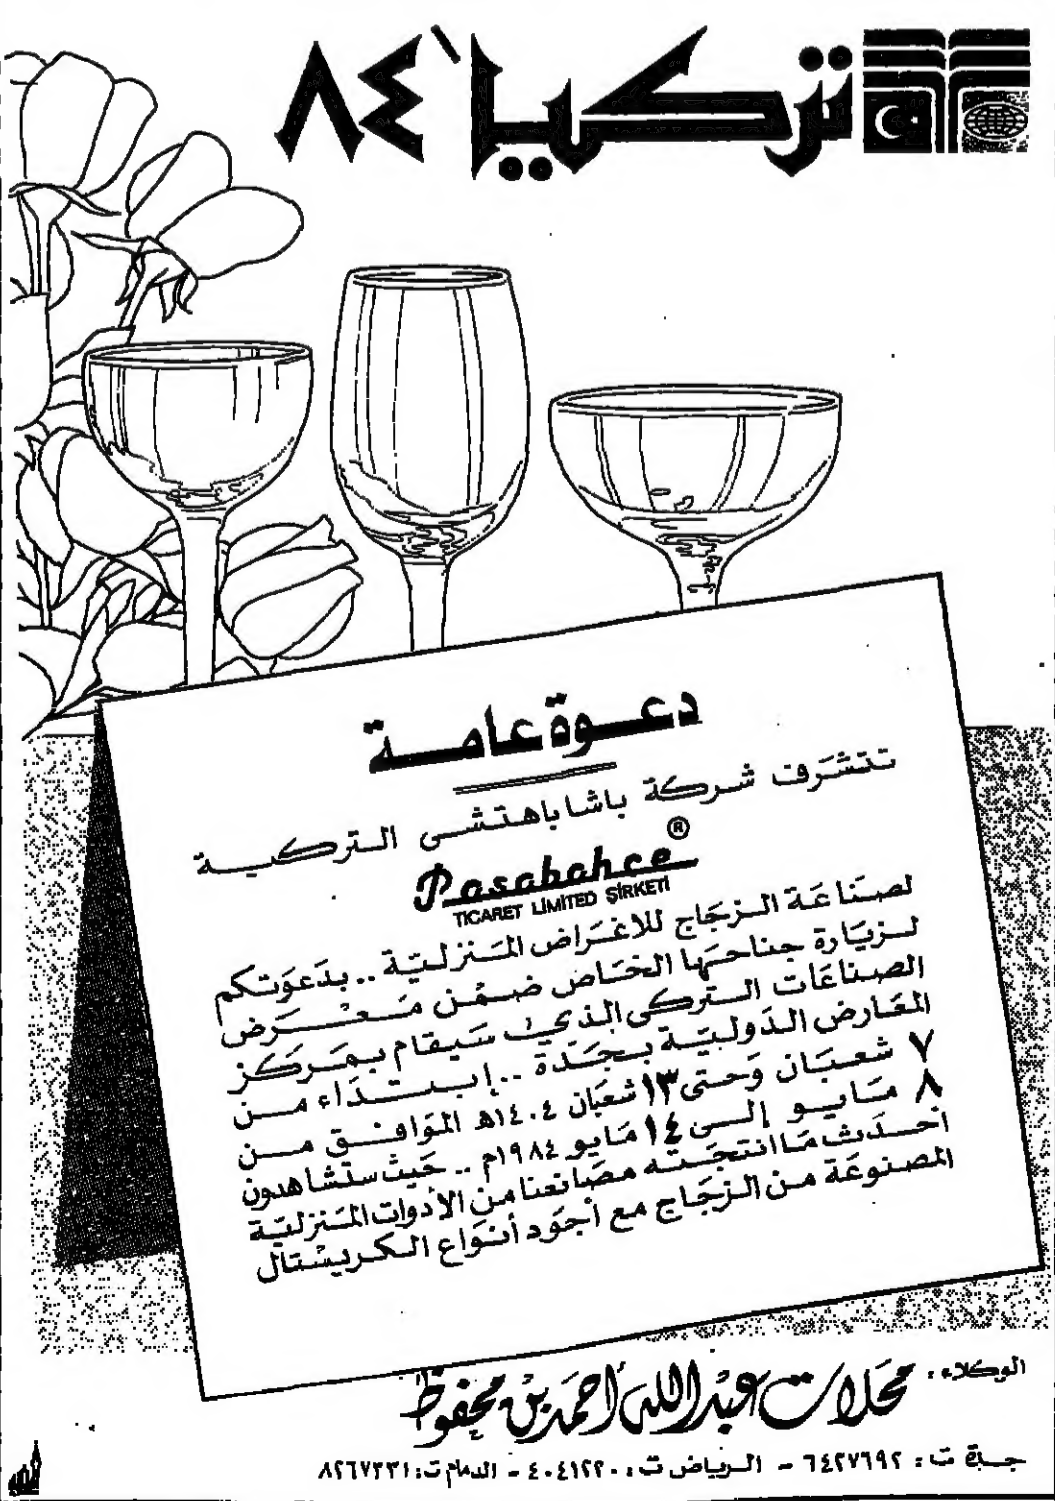 تركيا ٨٤
دعوة عامة
تتشرف شركة باشاباهتشى التركية
Pasabahce ®
TICARET LİMİTED ŞİRKETİ
لصناعة الزجاج للاغراض المنزلية .. بدعوتكم
لزيارة جناحها الخاص ضمن معرض
الصناعات التركى الذي سيقام بمركز
المعارض الدولية بجدة .. إبتداء من
٧ شعبان وحتى ١٣ شعبان ١٤٠٤هـ الموافق من
٨ مايو إلى ١٤ مايو ١٩٨٤م .. حيث ستشاهدون
احدث ما انتجته مصانعنا من الأدوات المنزلية
المصنوعة من الزجاج مع أجود أنواع الكريستال
الوكلاء :
محلات عبد الله أحمد بن محفوظ
جدة ت : ٦٤٢٧٦٩٢ - الرياض ت : ٤٠٤١٢٢٠ - الدمام ت : ٨٢٦٧٣٣١